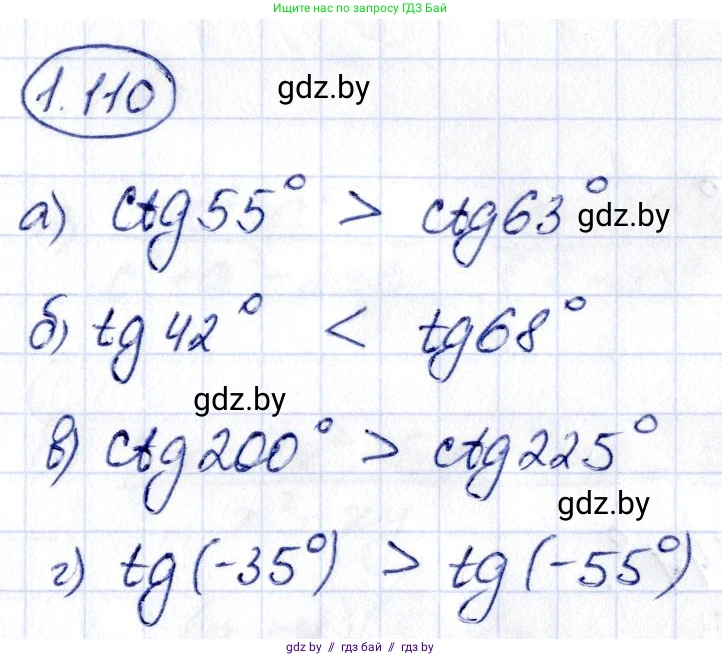 Ищите нас по запросу ГДЗ Бай
1.110
gdz.by
а) ctg 55° > ctg 63°
gdz.by
б) tg 42° < tg 68°
gdz.by
в) ctg 200° > ctg 225°
gdz.by
г) tg (-35°) > tg (-55°)
gdz.by // гдз бай // гдз.by